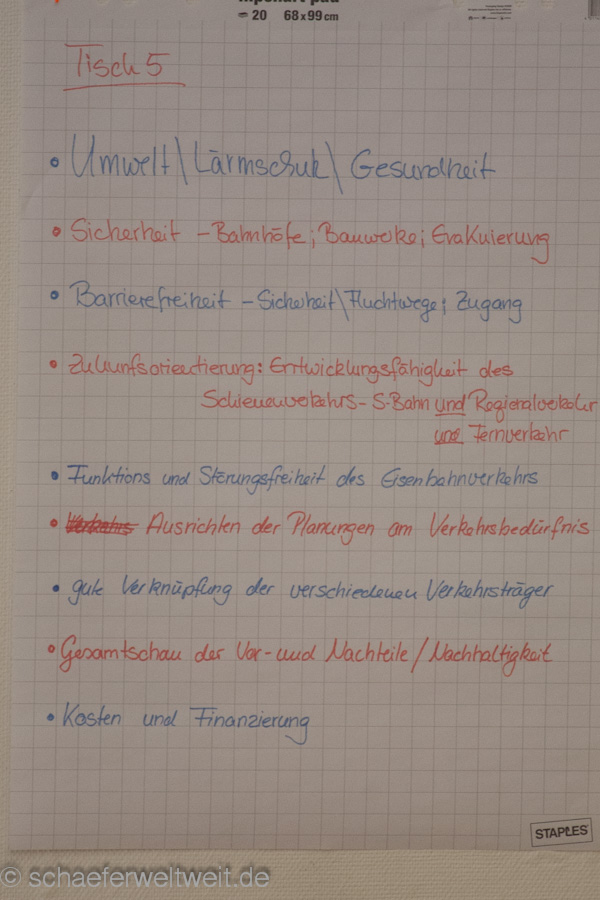 20 68x99cm
Tisch 5
• Umwelt\Lärmschutz\Gesundheit
• Sicherheit - Bahnhöfe; Bauwerke; Evakuierung
• Barrierefreiheit - Sicherheit\Fluchtwege; Zugang
• Zukunfsorientierung: Entwicklungsfähigkeit des
Schienenverkehrs - S-Bahn und Regionalverkehr
und Fernverkehr
• Funktions und Störungsfreiheit des Eisenbahnverkehrs
• Verkehrs Ausrichten der Planungen am Verkehrsbedürfnis
• gute Verknüpfung der verschiedenen Verkehrsträger
• Gesamtschau der Vor- und Nachteile / Nachhaltigkeit
• Kosten und Finanzierung
STAPLES
© schaeferweltweit.de